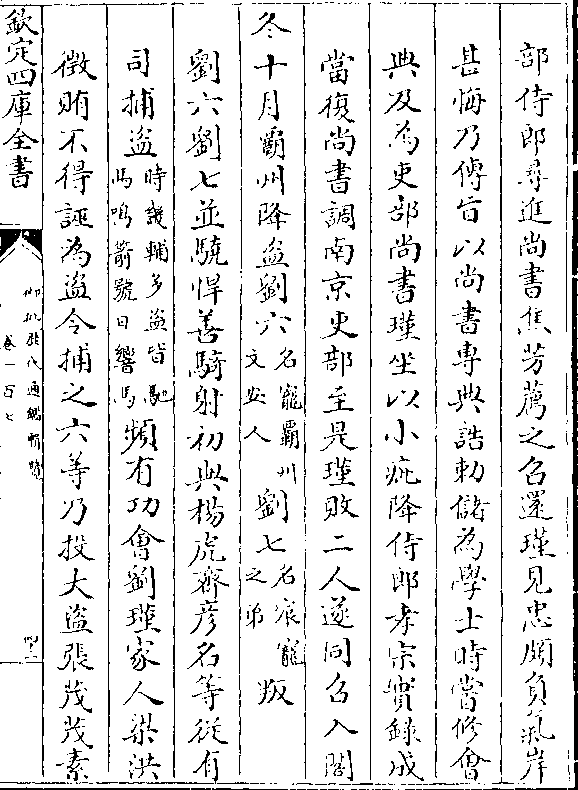 部侍郎尋進尚書焦芳薦之召還瑾見忠頗負氣岸
甚悔乃傳旨以尚書専典誥勅儲為學士時嘗修會
典及為吏部尚書瑾坐以小疵降侍郎孝宗實錄成
當復尚書調南京吏部至是瑾敗二人遂同召入閣
冬十月霸州降盜劉六名寵霸州文安人劉七名宸寵之弟叛
劉六劉七並驍悍善騎射初與楊虎齊彦名等從有
司捕盜時畿輔多盜皆馳馬鳴箭號曰響馬頻有功會劉瑾家人梁洪
徵賄不得誣為盜令捕之六等乃投大盜張茂茂素
欽定四庫全書
御批歴代通鑑輯覽
卷一百七